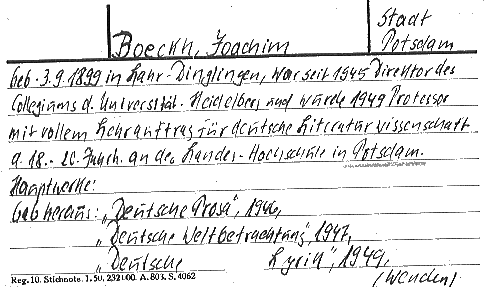 Stadt
Potsdam
Boeckh, Joachim
Geb. 3.9.1899 in Lahr-Dinglingen, war seit 1945 Direktor des
Collegiums d. Universität Heidelberg und wurde 1949 Professor
mit vollem Lehrauftrag für deutsche Literaturwissenschaft
d. 18.-20. Jahrh. an der Landes-Hochschule in Potsdam.
Hauptwerke:
Gab heraus: „Deutsche Prosa", 1946,
„Deutsche Weltbetrachtung", 1947,
„Deutsche Lyrik", 1949,
(wenden)
Reg. 10. Stichnote. 1. 50. 232100. A. 803. S. 4062